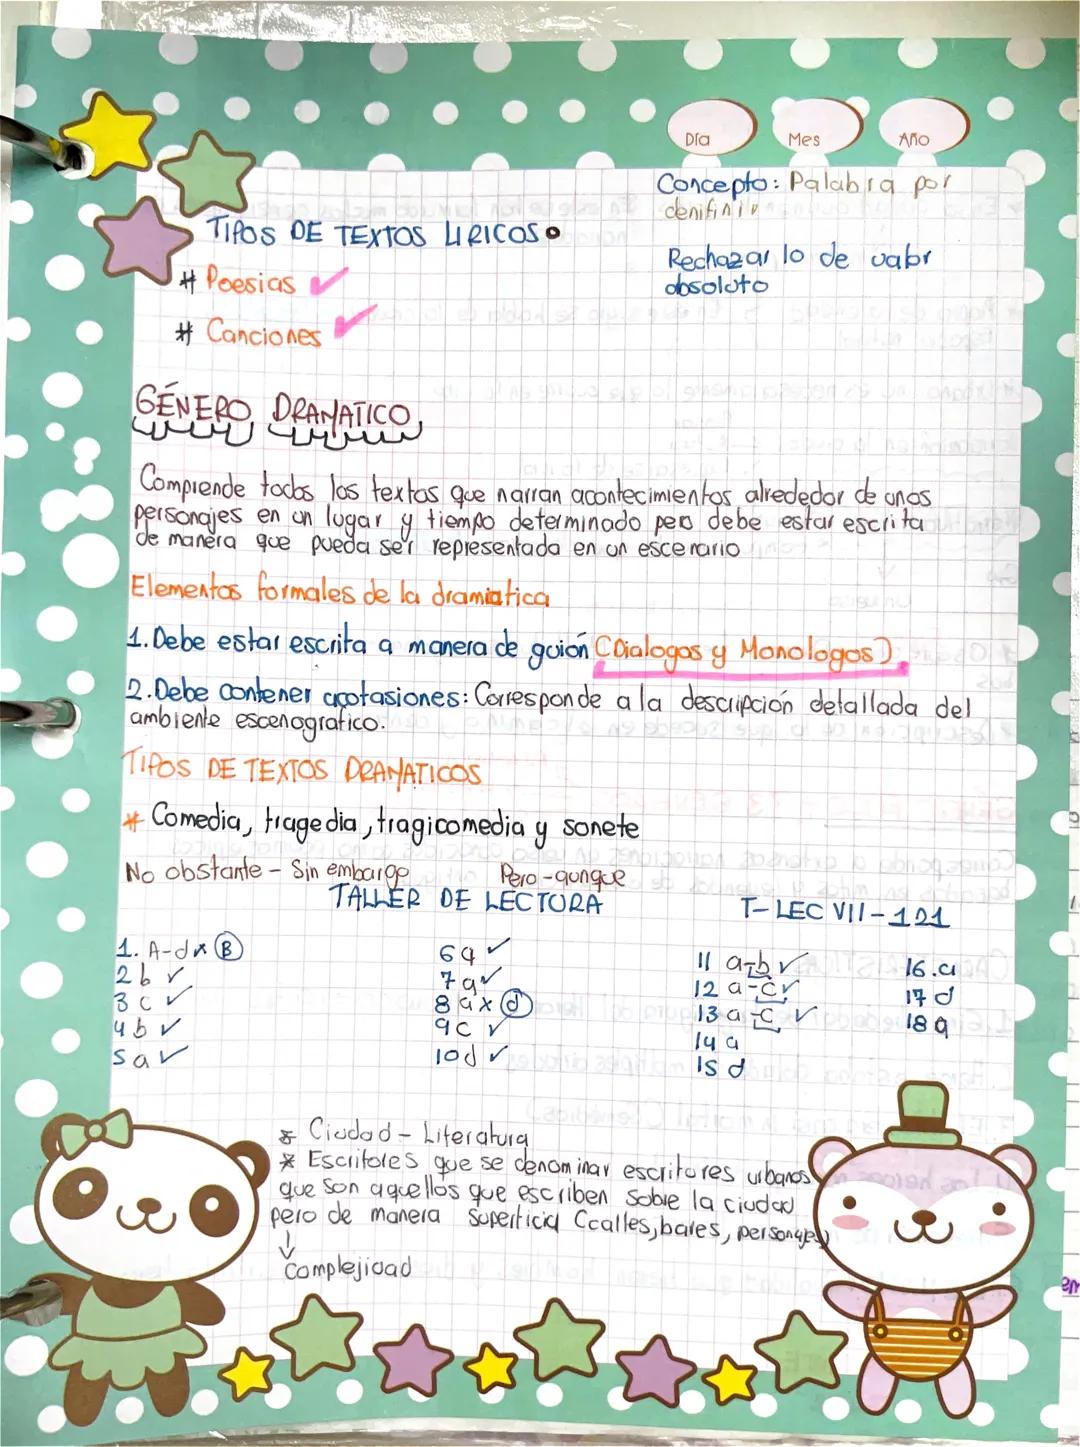 Día Mes Año
Concepto: Palabra por
denifinir
Rechazar lo de valor
absoluto
TIPOS DE TEXTOS LIRICOS
# Poesias
# Canciones
GÉNERO DRAMATICO
Comprende todos los textos que narran acontecimientos alrededor de unos
personajes en un lugar y tiempo determinado pero debe estar escrita
de manera que pueda ser representada en un escenario
Elementos formales de la dramiatica
1. Debe estar escrita a manera de guión (Dialogos y Monologos)
2. Debe contener acotasiones: Corresponde a la descripción detallada del
ambiente escenografico.
TIPOS DE TEXTOS DRAMATICOS
* Comedia, tragedia, tragicomedia y sonete
No obstante - Sin embargo Pero - aunque
TALLER DE LECTURA T-LEC VII-121
1. A-d x B
2 b ✓
3 c ✓
4 b ✓
5 a ✓
6 a ✓
7 a ✓
8 a x d
9 c ✓
10 d ✓
11 a-b ✓
12 a-c ✓
13 a-c ✓
14 a
15 d
16. a
17 d
18 a
* Ciudad - Literatura
* Escritores que se denominar escritores urbanos
que son aquellos que escriben sobre la ciudad
pero de manera superficial (calles, bares, personajes)
↓
Complejidad